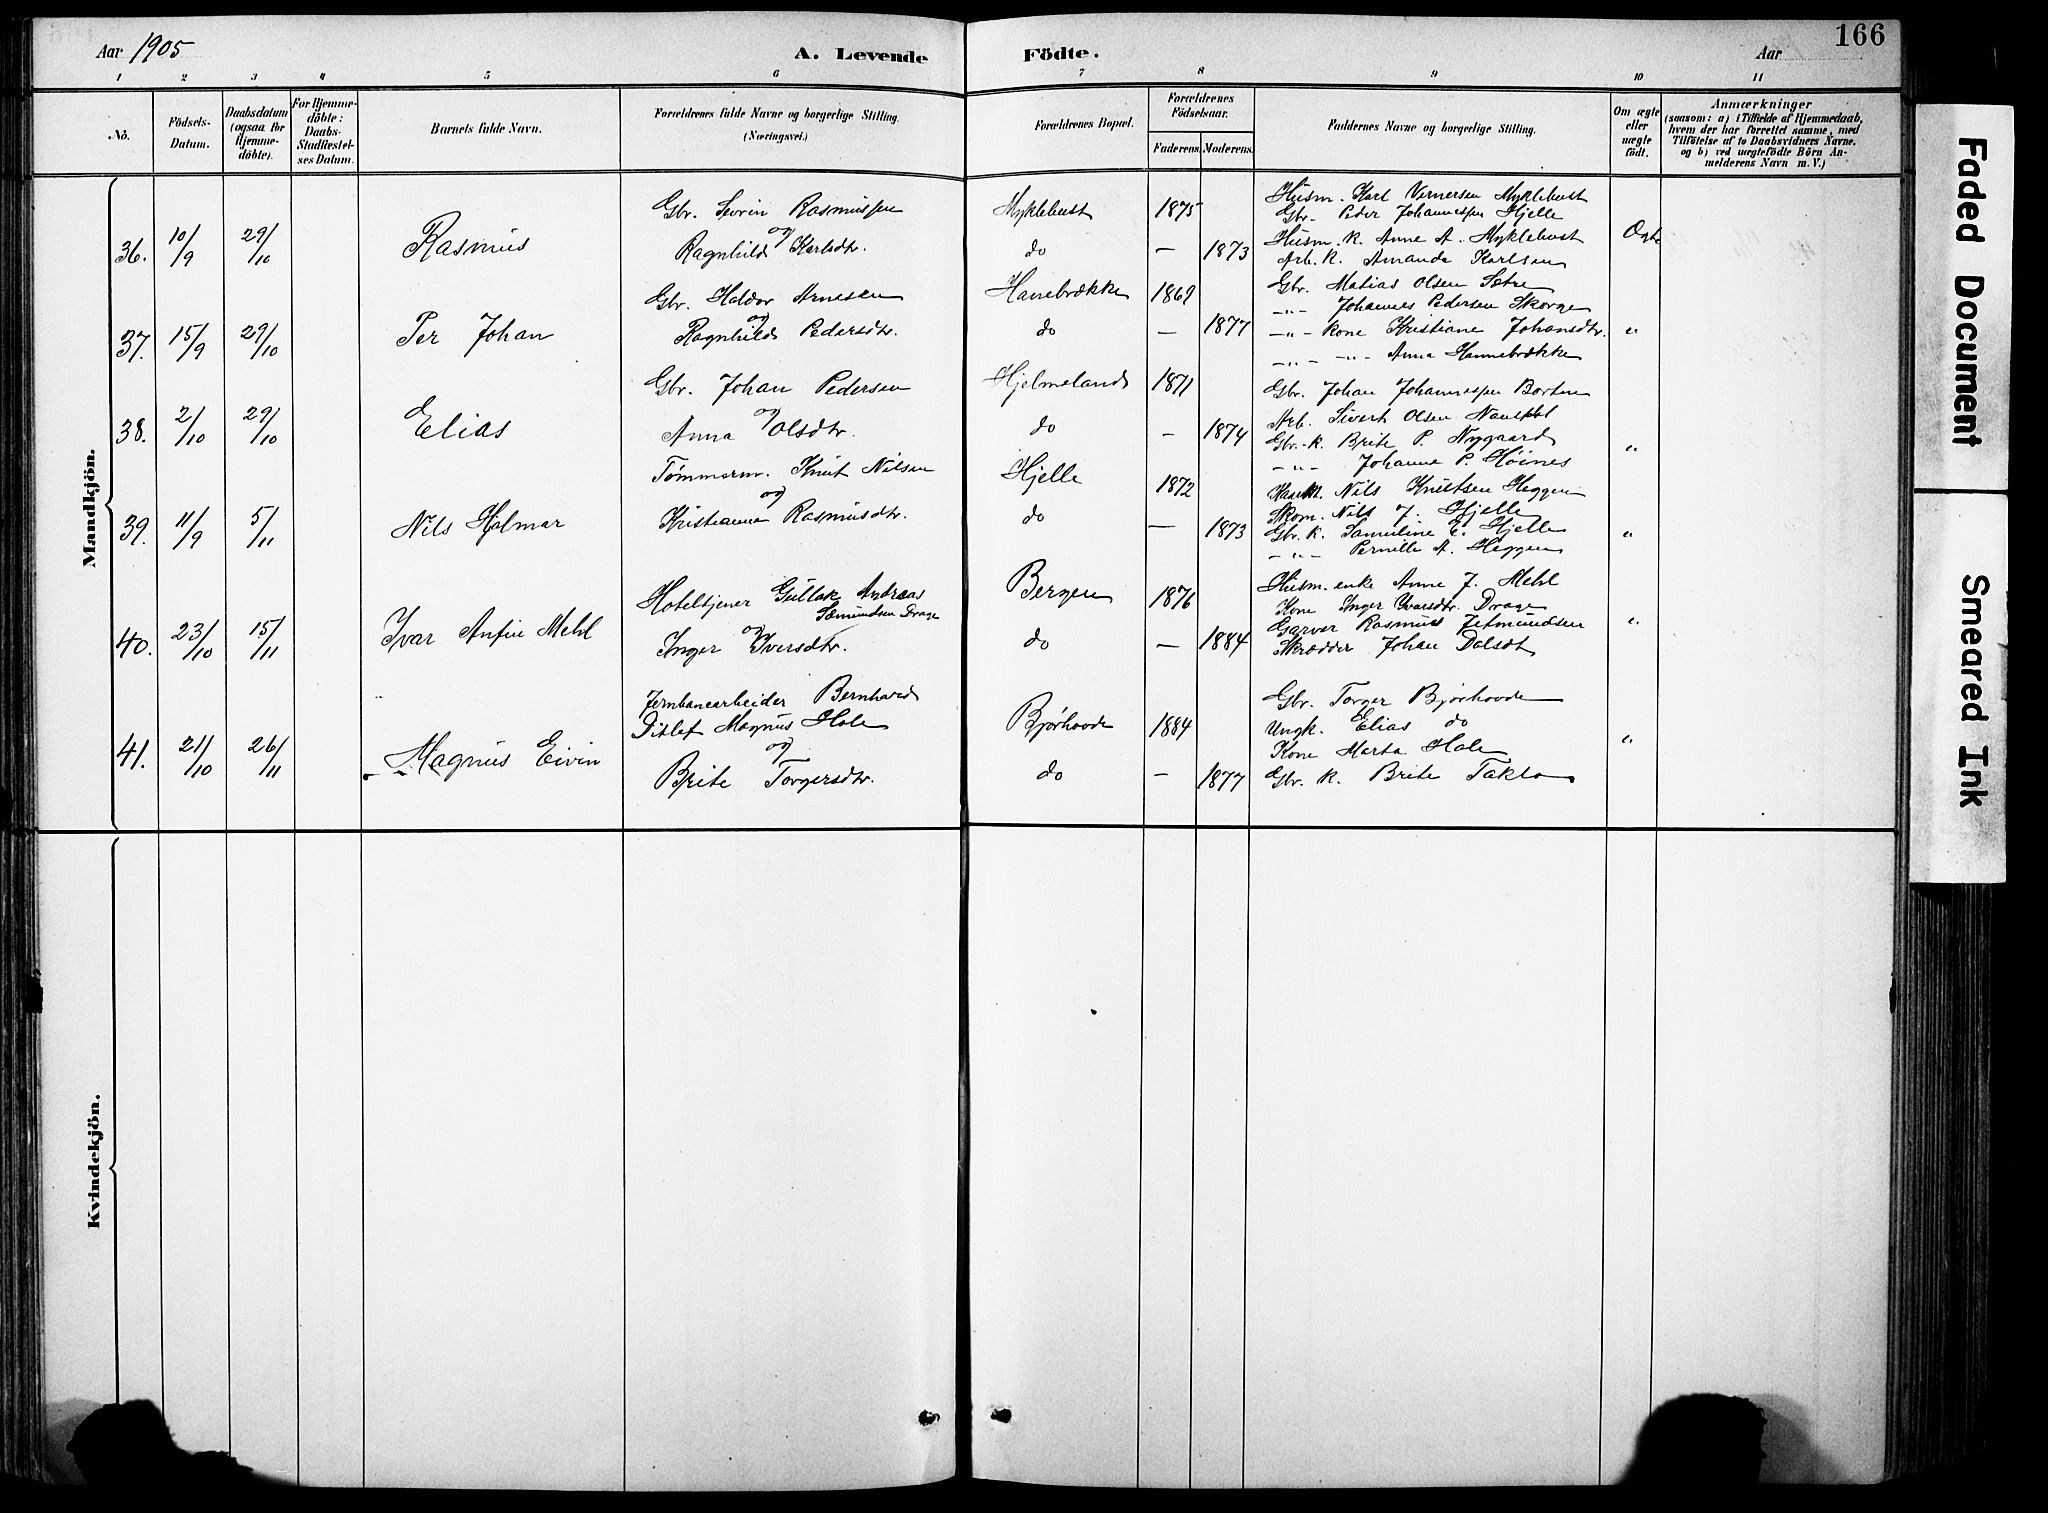 166
Aar 1905 A. Levende Födte. Aar
1 2 3 4 5 6 7 8 9 10 11
No. Födsels-Datum. Daabsdatum (ogsaa for Hjemmedöbte). For Hjemmedöbte: Daabs-Stadfestelses Datum. Barnets fulde Navn. Forældrenes fulde Navne og borgerlige Stilling. (Næringsvei.) Forældrenes Bopæl. Forældrenes Födselsaar. Faderens. Moderens. Faddernes Navne og borgerlige Stilling. Om ægte eller uægte födt. Anmærkninger (saasom: a) i Tilfælde af Hjemmedaab, hvem der har forrettet samme, med Tilföielse af to Daabsvidners Navne. og b) ved uægtefödte Börn Anmelderens Navn m. V.)
Mandkjön.
Gbr. Sevrin Rasmussen Myklebust 1875 Husm. Karl Vernersen Myklebust
Gbr. Peder Johannessen Hjelle
36. 10/9 29/10 Rasmus og Ragnhild Karlsdtr. do — 1873 Husm. K. Anne A. Myklebust Ægte
Arb. K. Amanda Karlsen
Gbr. Haldor Arnesen Hannebrække 1869 Gbr. Matias Olsen Sætre
—"— Johannes Pedersen Skorge
37. 15/9 29/10 Per Johan og Ragnhild Pedersdtr. do — 1877 —"— Kone Kristiane Johansdtr. "
—"— —"— Anna Hannebrække
Gbr. Johan Pedersen Hjelmeland 1871 Gbr. Johan Johannessen Borten
Arb. Sivert Olsen
38. 2/10 29/10 Elias og Anna Olsdtr. do — 1874 Gbr. K. Brite P. Nygaard "
—"— Johanne P. Høines
Tømmerm. Knut Nilsen Hjelle 1872 Nils Knutsen Heggen
Skom. Nils J. Hjelle
39. 11/9 5/11 Nils Hjalmar og Kristianna Rasmusdtr. do — 1873 Gbr. K. Samuline E. Hjelle "
—"— Pernille A. Heggen
Hoteltjener Gullak Andreas Sæmundsen Drage Bergen 1876 Husm. enke Anne J. Mehl
Kone Inger Yvarsdtr. Drage
40. 23/10 15/11 Ivar Anfin Mehl og Inger Iversdtr. do — 1884 Garver Rasmus Jetmundsen "
Skrædder Johan Dalsdt
Jernbanearbeider Bernhard Ditlef Magnus Hole Bjørhovde 1884 Gbr. Torger Bjørhovde
Ungk. Elias do
41. 21/10 26/11 Magnus Eivin og Brite Torgersdtr. do — 1877 Kone Marta Hole "
Gbr. K. Brite Taklo
Kvindekjön.
Faded Document
Smeared Ink